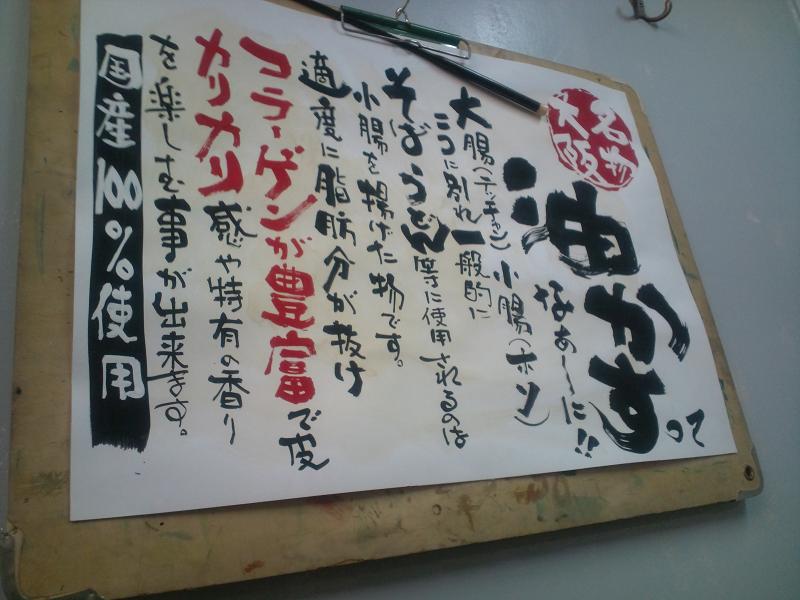 大阪名物
油かすって
なぁ〜に!!
大腸(テッチャン)小腸(ホソ)
二つに別れ一般的に
そばうどん等に使用されるのは
小腸を揚げた物です。
適度に脂肪分が抜け
コラーゲンが豊富で皮
カリカリ感や特有の香り
を楽しむ事が出来ます。
国産100%使用